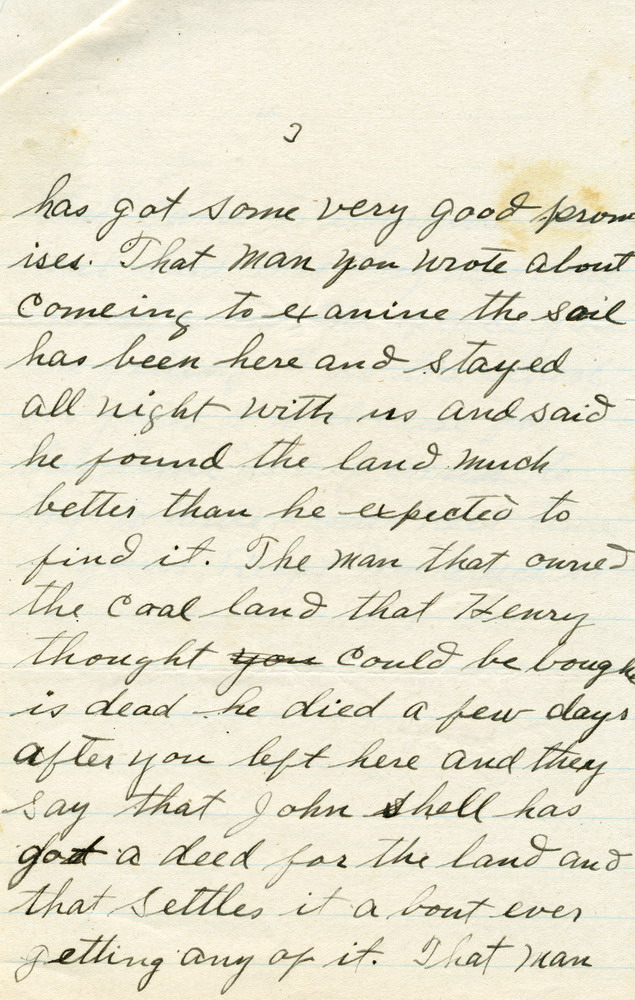 3
has got some very good prom
ises. That man you wrote about
comeing to examine the soil
has been here and stayed
all night with us and said
he found the land much
better than he expected to
find it. The man that owned
the coal land that Henry
thought you could be bought
is dead he died a few days
after you left here and they
say that John Shell has
got a deed for the land and
that settles it a bout ever
getting any of it. That man